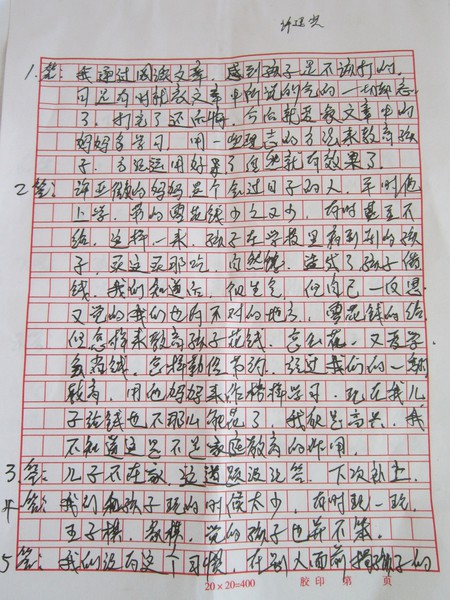 1.答：我通过阅读文章，感到孩子是不该打的，
可是有时就教文章中所说的气的一切都忘
了，打完了还后悔，今后就要教文章中的
妈妈多学习，用一些理智的方法来教育孩
子，方法运用好了自然就有效果了。
2答：许亚的妈妈是个会过日子的人，平时他
上学，我的零花钱少之又少，有时甚至不
给，这样一来，孩子在学校里看到别的孩
子，买这买那吃，自然馋，造成了孩子偷
钱，我们知道后，很生气，但自己一反思
又觉的我们也有不对的地方，零花钱的给
但怎样来教育孩子花钱，怎么花，又要学
会省钱，怎样勤俭节约，经过我们的一番
教育，用他妈妈来作榜样学习，现在我儿
子话钱也不那么乱花了，我很是高兴，我
不知道这是不是家庭教育的作用。
3.答：儿子不在家，这道题没法答，下次补上。
4答：我们和孩子玩的时候太少，有时玩一玩
五子棋、象棋，觉的孩子也并不笨。
5答：我们没有这个习惯，在别人面前揭孩子的
20×20=400 胶印 第 页